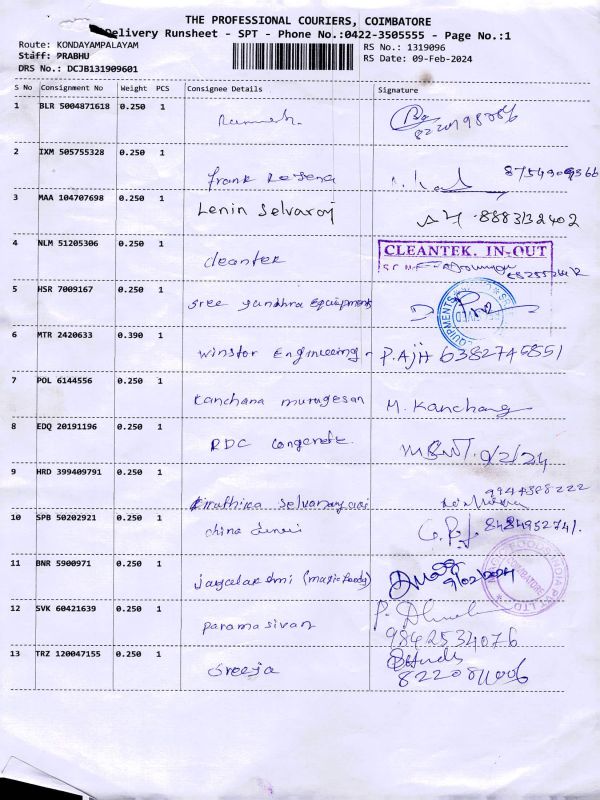 THE PROFESSIONAL COURIERS, COIMBATORE
Delivery Runsheet - SPT - Phone No.:0422-3505555 - Page No.:1
Route: KONDAYAMPALAYAM
RS No.: 1319096
Staff: PRABHU
RS Date: 09-Feb-2024
DRS No.: DCJB131909601
S No Consignment No Weight PCS Consignee Details Signature
1 BLR 5004871618 0.250 1 Ramesh
2 IXM 505755328 0.250 1
3 MAA 104707698 0.250 1 Lenin Selvaraj 8883132402
4 NLM 51205306 0.250 1 cleantek CLEANTEK. IN-OUT
5 HSR 7009167 0.250 1 Sree Equipments
6 MTR 2420633 0.390 1 Winstor Engineering P. Ajit 6382745851
7 POL 6144556 0.250 1 Kanchana murugesan M. Kanchana
8 EDQ 20191196 0.250 1 RDC Congcrete 9/2/24
9 HRD 399409791 0.250 1 9944388222
10 SPB 50202921 0.250 1 china 8484952741.
11 BNR 5900971 0.250 1 9/02/2024
12 SVK 60421639 0.250 1 paramasivan 9842534076
13 TRZ 120047155 0.250 1 Sreeja